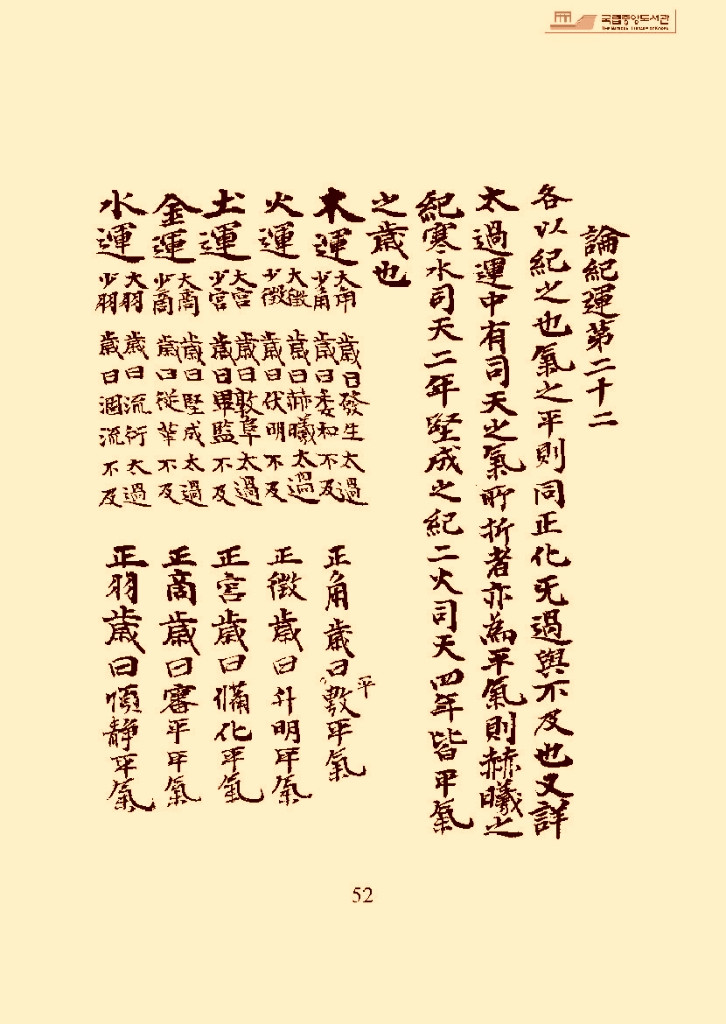 국립중앙도서관
THE NATIONAL LIBRARY OF KOREA
論紀運第二十二
各以紀之也氣之平則同正化旡過與不及也又詳
太過運中有司天之氣所折者亦為平氣則赫曦之
紀寒水司天二年堅成之紀二火司天四年皆平氣
之歲也
木運 大角 歲曰發生太過
少角 歲曰委和不及
正角歲曰敷平氣
平
火運 大徵 歲曰赫曦太過
少徵 歲曰伏明不及
正徵歲曰升明平氣
土運 大宮 歲曰敦阜太過
少宮 歲曰畢監不及
正宮歲曰備化平氣
金運 大商 歲曰堅成太過
少商 歲曰從革不及
正商歲曰審平平氣
水運 大羽 歲曰流衍太過
少羽 歲曰涸流不及
正羽歲曰順靜平氣
52